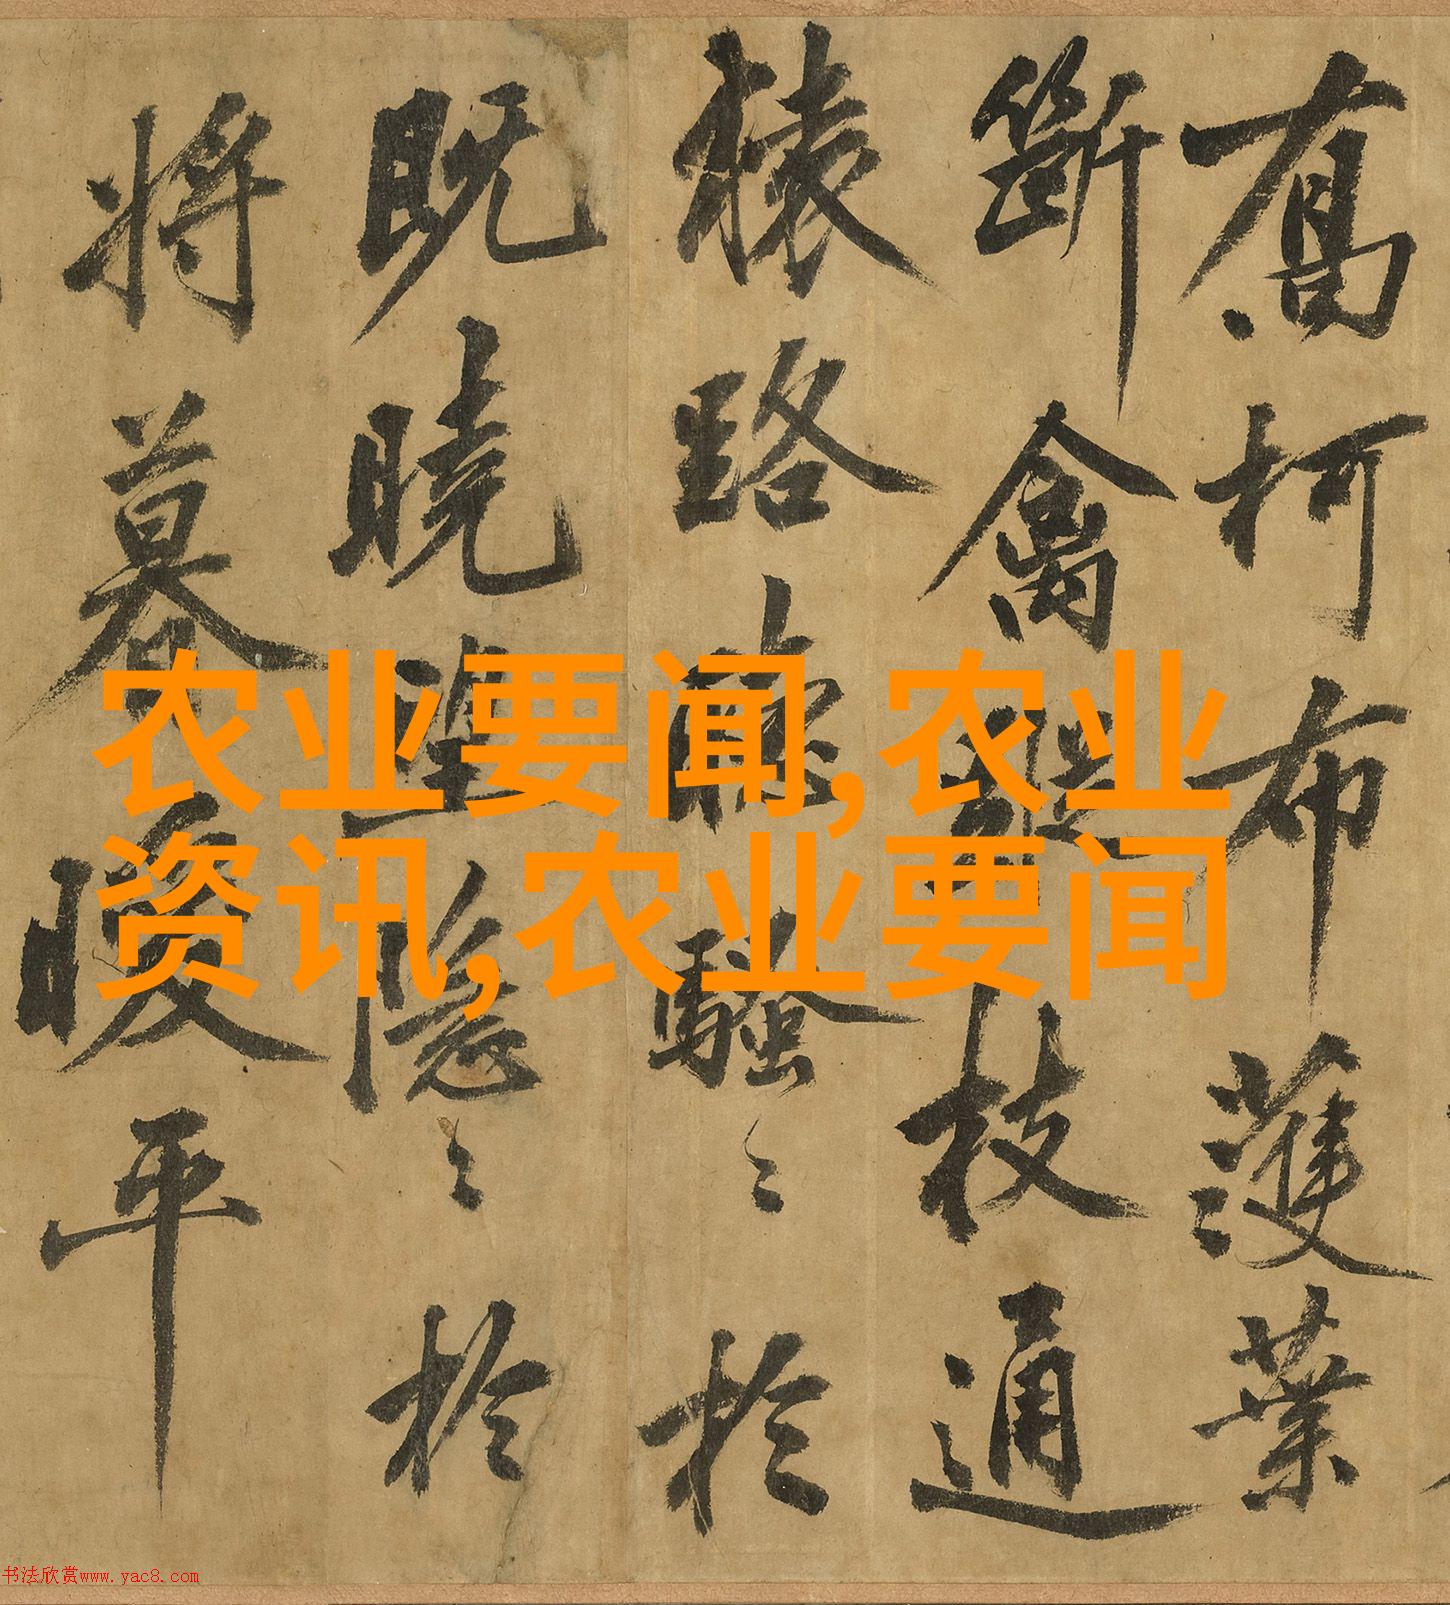 喬柯布濩葉
斷禽枝通
猿路聽騷〻於
既曉望隱〻於
将暮暖平
农业要闻,农业
资讯,农业要闻
书法欣赏www.yac8.com